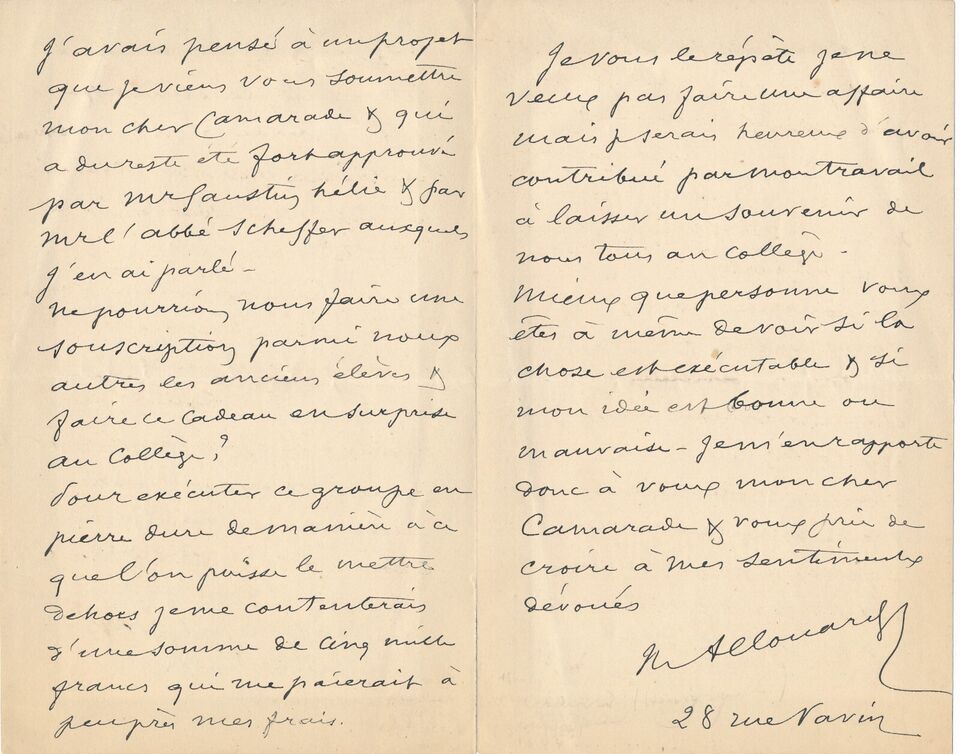 J'avais pensé à un projet
que je viens vous soumettre
mon cher Camarade & qui
a du reste été fort approuvé
par Mr Faustin hélie & par
Mr l'abbé Scheffer auxquels
j'en ai parlé -
ne pourrions nous faire une
souscription parmi nous
autres les anciens élèves &
faire ce cadeau en surprise
au Collège ?
Pour exécuter ce groupe en
pierre dure de manière à ce
que l'on puisse le mettre
dehors je me contenterais
d'une somme de cinq mille
francs qui me paierait à
peu près mes frais.
Je vous le répète je ne
veux pas faire une affaire
mais je serais heureux d'avoir
contribué par mon travail
à laisser un souvenir de
nous tous au Collège -
Mieux que personne vous
êtes à même de voir si la
chose est exécutable & si
mon idée est bonne ou
mauvaise - Je m'en rapporte
donc à vous mon cher
Camarade & vous prie de
croire à mes sentiments
dévoués
H Allouard
28 rue Vavin